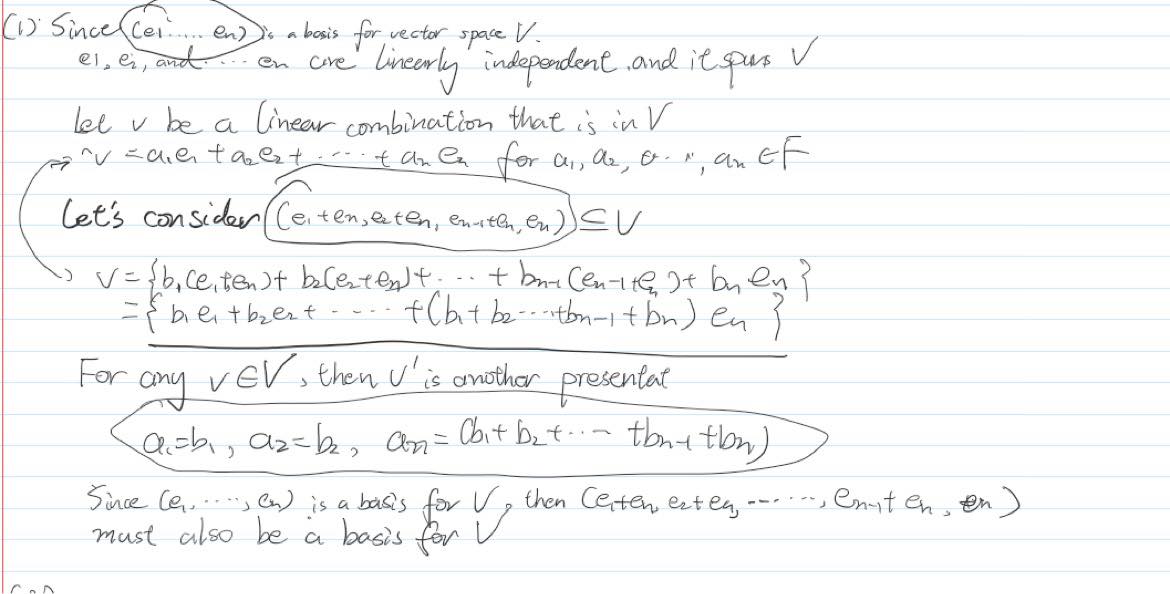 (1) Since (e1, ..... en) is a basis for vector space V.
e1, e2, and ... en are linearly independent. and it spans V
let v be a linear combination that is in V
v = a1e1 + a2e2 + ...... + an en for a1, a2, ..., an ∈ F
Let's consider (e1+en, e2+en, en-1+en, en) ⊆ V
v = {b1(e1+en) + b2(e2+en) + ... + bn-1(en-1+en) + bn en}
= {b1e1 + b2e2 + ...... + (b1 + b2 ... + bn-1 + bn) en}
For any v ∈ V, then v' is another presentat
a1=b1, a2=b2, an = (b1 + b2 + ... + bn-1 + bn)
Since (e1, ....., en) is a basis for V, then (e1+en, e2+en, ......, en-1+en, en)
must also be a basis for V